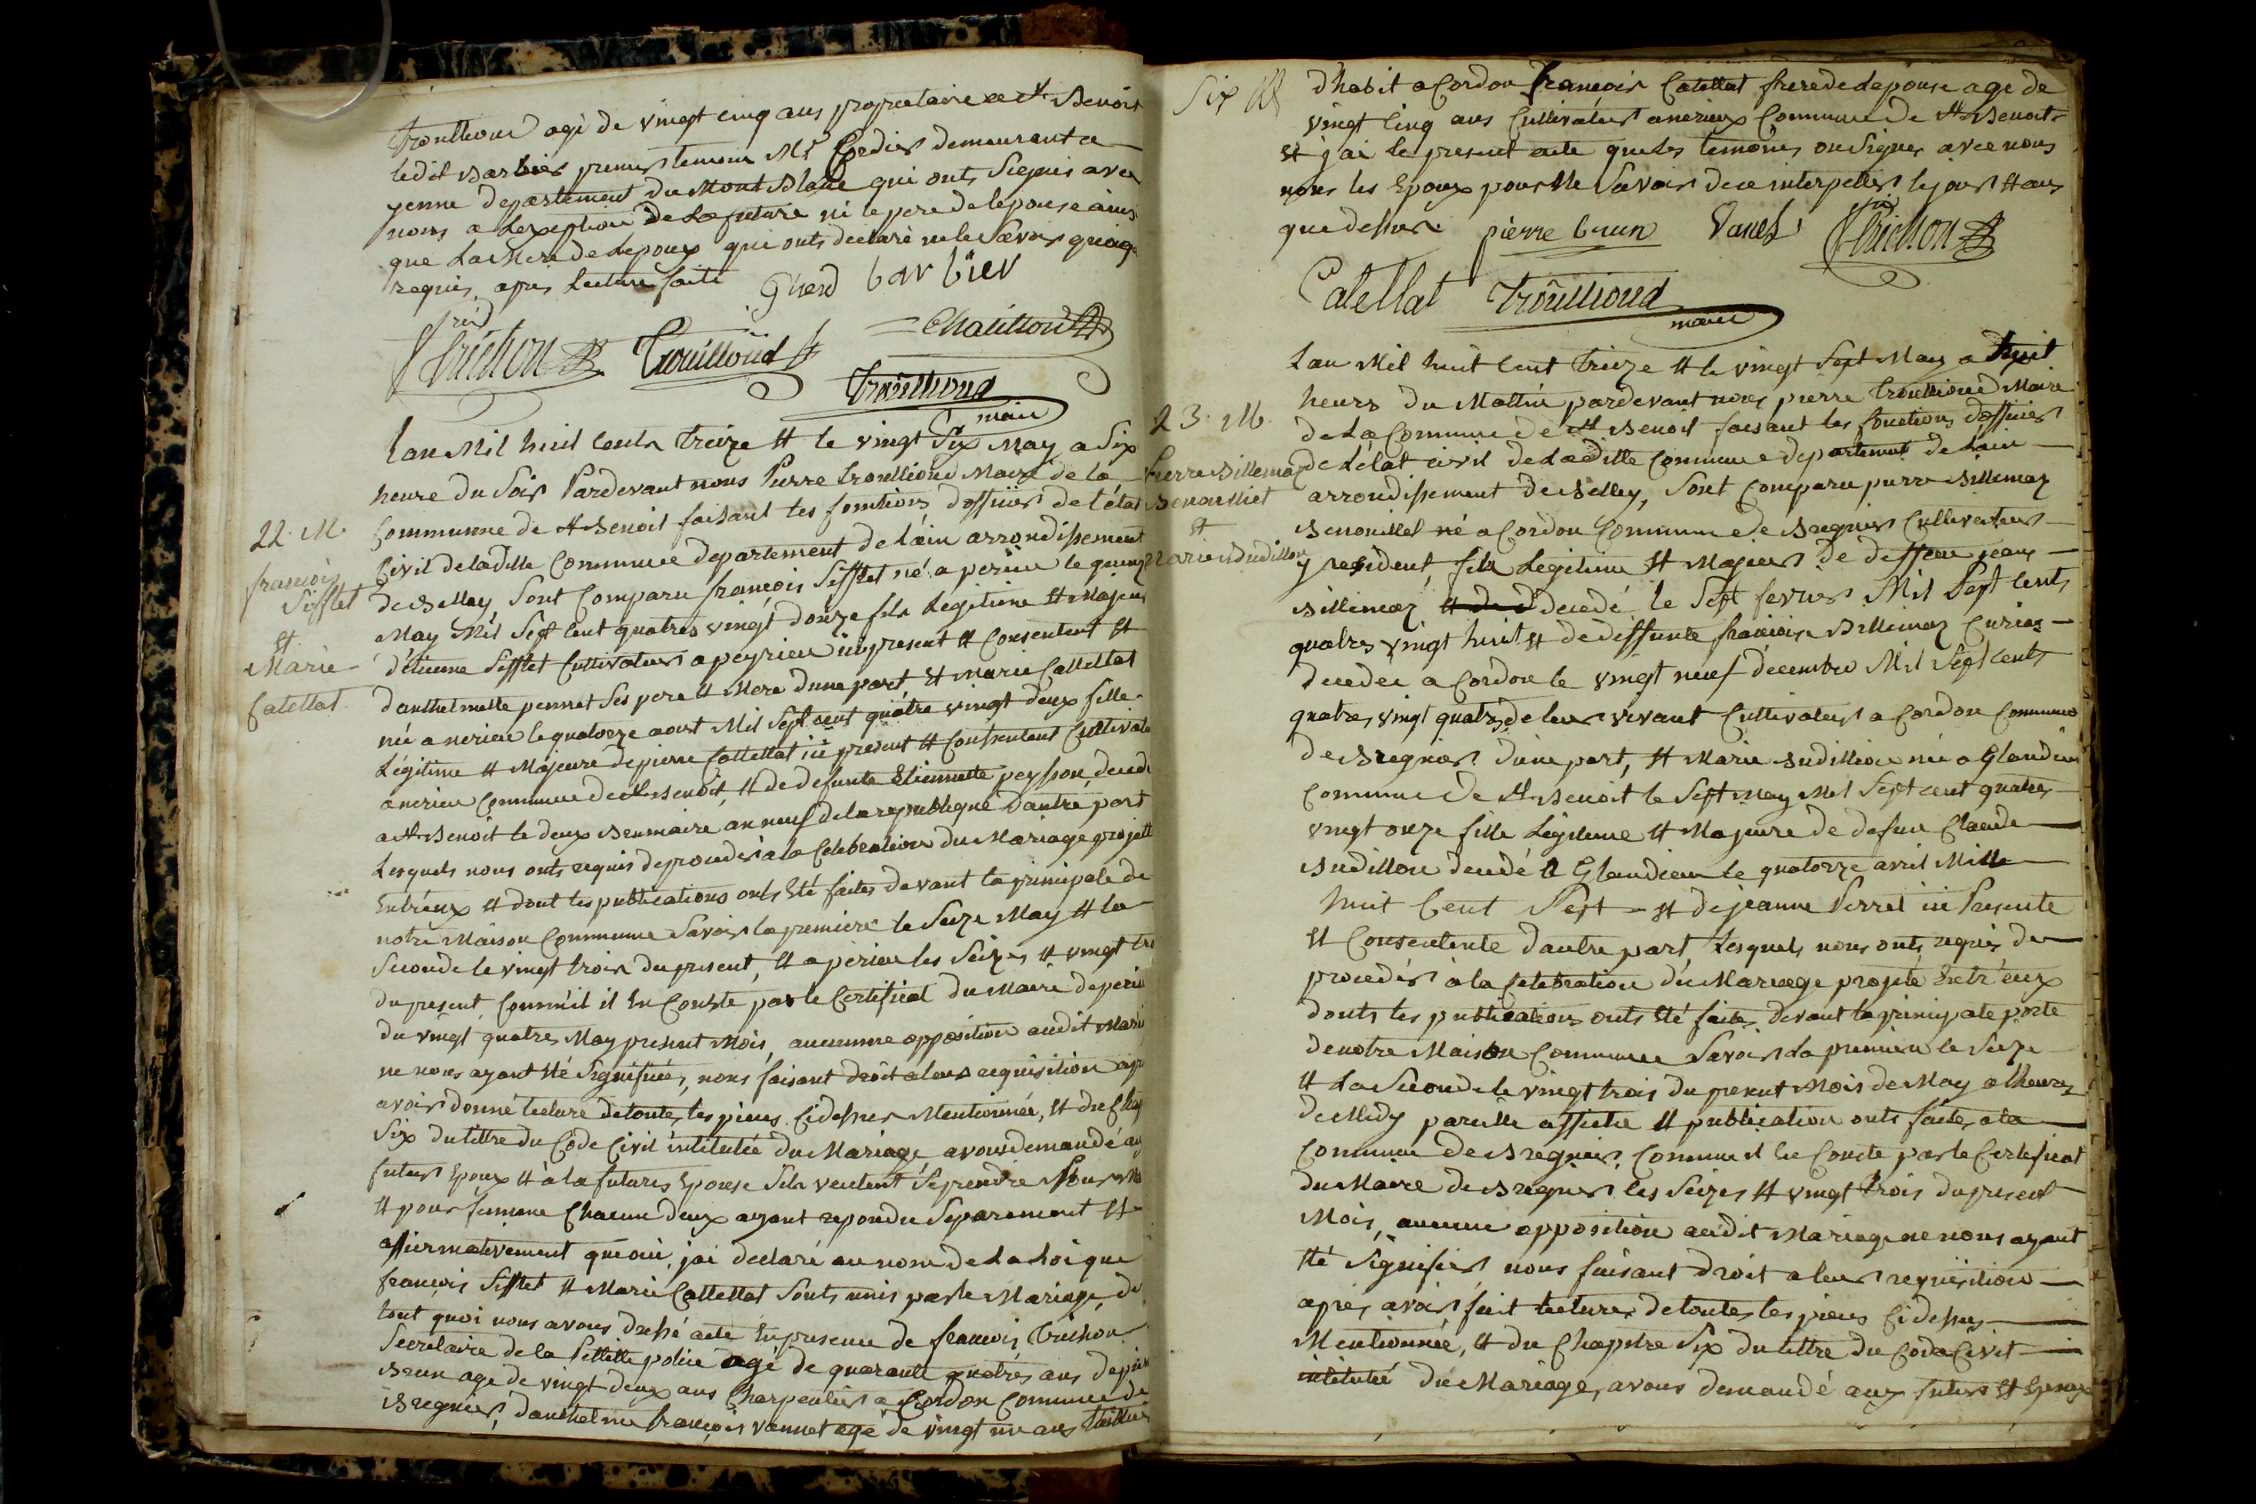 trouilloud agé de vingt cinq ans proprietaire a St Benoit
ledit Barbier premier temoin Mr Cordier demeurant a
yenne departement du Mont Blanc qui onts signés avec
nous a lexeption de la future ni le pere de lepouse ainsi
que la Mere de lepoux qui onts declaré ne le savoir
requis, apres lecture faite barbier
Chatillon
Trichon Trouilloud
Trouilloud
maire
22. M.
francois
Sifflet
et
Marie
Catellat
Lan Mil huit Cents treize et le vingt Six May a Six
heure du Soir Pardevant nous Pierre trouilloud Maire de la
Commune de St Benoit faisant les fontions doffiier de létat
Civil de ladille Commune departement de lain arrondissement
de Belley, Sont Comparu françois Sifflet né a perieu le quinz
May Mil Sept Cent quatres vingt douze fils Legitime et Majeur
détienne Sifflet Cultivateur a peyrieu ici present et Consentent et
danthelmette pennet Ses pere et Mere dune part et marie Catellat
née a nerieu le quatorze aoust Mil Sept cent quatre vingt deux fille
Légitime et Majeure de pierre Catellat ici present et Consentent Cultivate
a nerieu Commune de St Benoit, et de defunte Etiennette peysson, decede
a St Benoit le deux Brumaire an neuf de la republique dautre part
Lesquels nous onts requis de proceder a la Celebration du Mariage projetté
Entréux et dont les publications onts Eté faites devant la principale de
notre Maison Commune Savoir la premiere le Seize May et la
Seconde le vingt trois du present, et a perieu les Seizes et vingt tro
du present, Comméil il En Conste par le Certificat du Maire de perieu
du vingt quatres May present Mois, aucunne opposition audit Maria
ne nous ayant Eté Signifiéé, nous faisant droit a leur requisition apr
avoir donné lecture de toutes les pieces Cidessus Mentionnée, et du Chap
Six du tittre du Code Civil intitulée du Mariage avons demandé au
futur Epoux et à la futures Epouse Sils veulent Seprendre Pour
et pour femme Chacun deux ayant repondu Separement et
affirmativement queoui, jai declaré au nom de La Loi que
françois Sifflet et Marie Catellat Sonts unis par le Mariage, de
tout quoi nous avons dressé acte En presence de francois Trichon
Secretaire de la Pettitte police agé de quarante quatres ans de pierre
Brun age de vingt deux ans Charpentier a Cordon Commune de
Bregnier, danthelme françois vannet agé de vingt un ans
Six
dhabit a Cordon françois Catellat frere de lepouse age de
vingt Cinq ans Cultivateur a nerieux Commune de St Benoit
et jai le present acte que les temoins on Signer avec nous
nous les Epoux pour Ne Savoir de ce interpeller les jour et ans
que dessus. pierre brun Vanet Trichon
Catellat Trouilloud
maire
23. M.
Pierre Billemaz
Benouillet
et
Marie Budillon
Lan Mil huit Cent treize et le vingt Sept May a huit
heurs du Mattin pardevant nous pierre trouilloud Maire
de La Commune de St Benoit faisant les fonctions doffiier
de Létat civil de Ladille Commune departement de Lain
arrondissement de Belley, Sont Comparu pierre Billemaz
Benouillet né a Cordon Commune de Bregnier Cultivateur
y resident, fils Legitime et Majeur de deffeu jean
Billimaz decedé le Sept fevrier Mil Sept Cents
quatres vingt huit et de deffunte françoise Billimaz Curiaz
decedee a Cordon le vingt neuf décembre Mil Sept Cents
quatres vingt quatres de leur vivant Cultivateurs a Cordon Commune
de Bregnier dune part, et Marie Budillion née a Glandieu
Commune de St Benoit le Sept May Mil Sept cent quatres
vingt onze fille Légitime et Majeure de defun Claude
Budillon decedé a Glandieu le quatorze avril Mille
huit Cent Sept et de jeanne Perret ici Presente
et Consentente dautre part, Lesquels nous onts requis de
proceder à la Celebration du Mariage projeté Entréeux
donts les publications onts Eté faites devant la principale porte
de notre Maison Commune Savoir La premiere le Seize
et La Seconde le vingt trois du present Mois de May a lheures
de Midy pareille affiche et publication onts faites a la
Commune de Bregnier Comme il En Conste par le Certificat
du Maire de Bregnier les Seizes et vingt trois du present
Mois, aucune opposition audit Mariage ne nous ayant
Eté Signifier nous faisant droit a leur requisition
apres avoir fait lectures de toutes les pieces Cidessus
Mentionnée, et du Chapitre Six du tittre du Code Civil
intitulée du Mariage, avons demandé aux futurs et Epoux